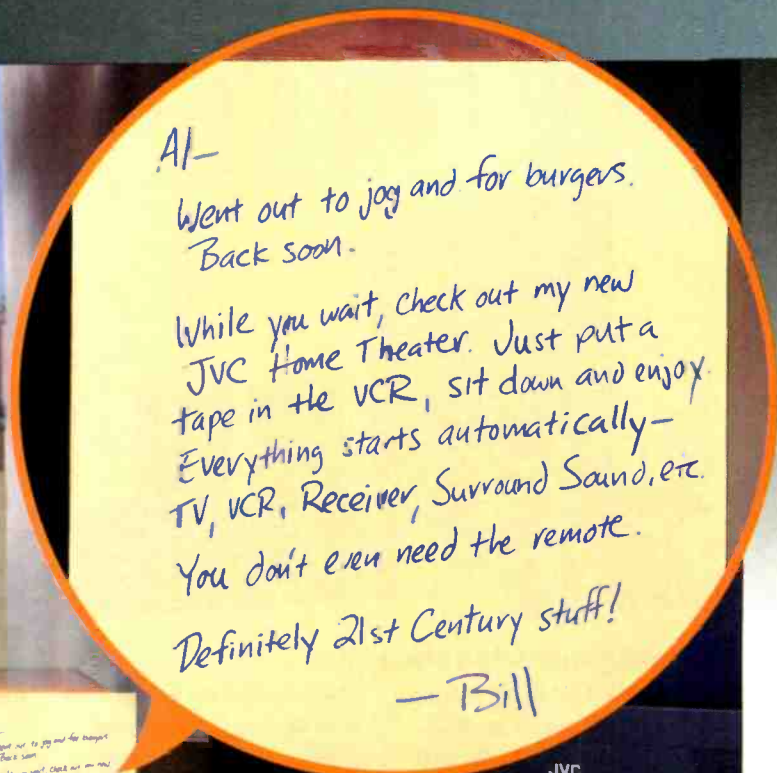 Al—
Went out to jog and for burgers.
Back soon.
While you wait, check out my new
JVC Home Theater. Just put a
tape in the VCR, sit down and enjoy.
Everything starts automatically—
TV, VCR, Receiver, Surround Sound, etc.
You don't even need the remote.
Definitely 21st Century stuff!
— Bill
out to jog and for burgers
Back soon
wait check out my new
JVC